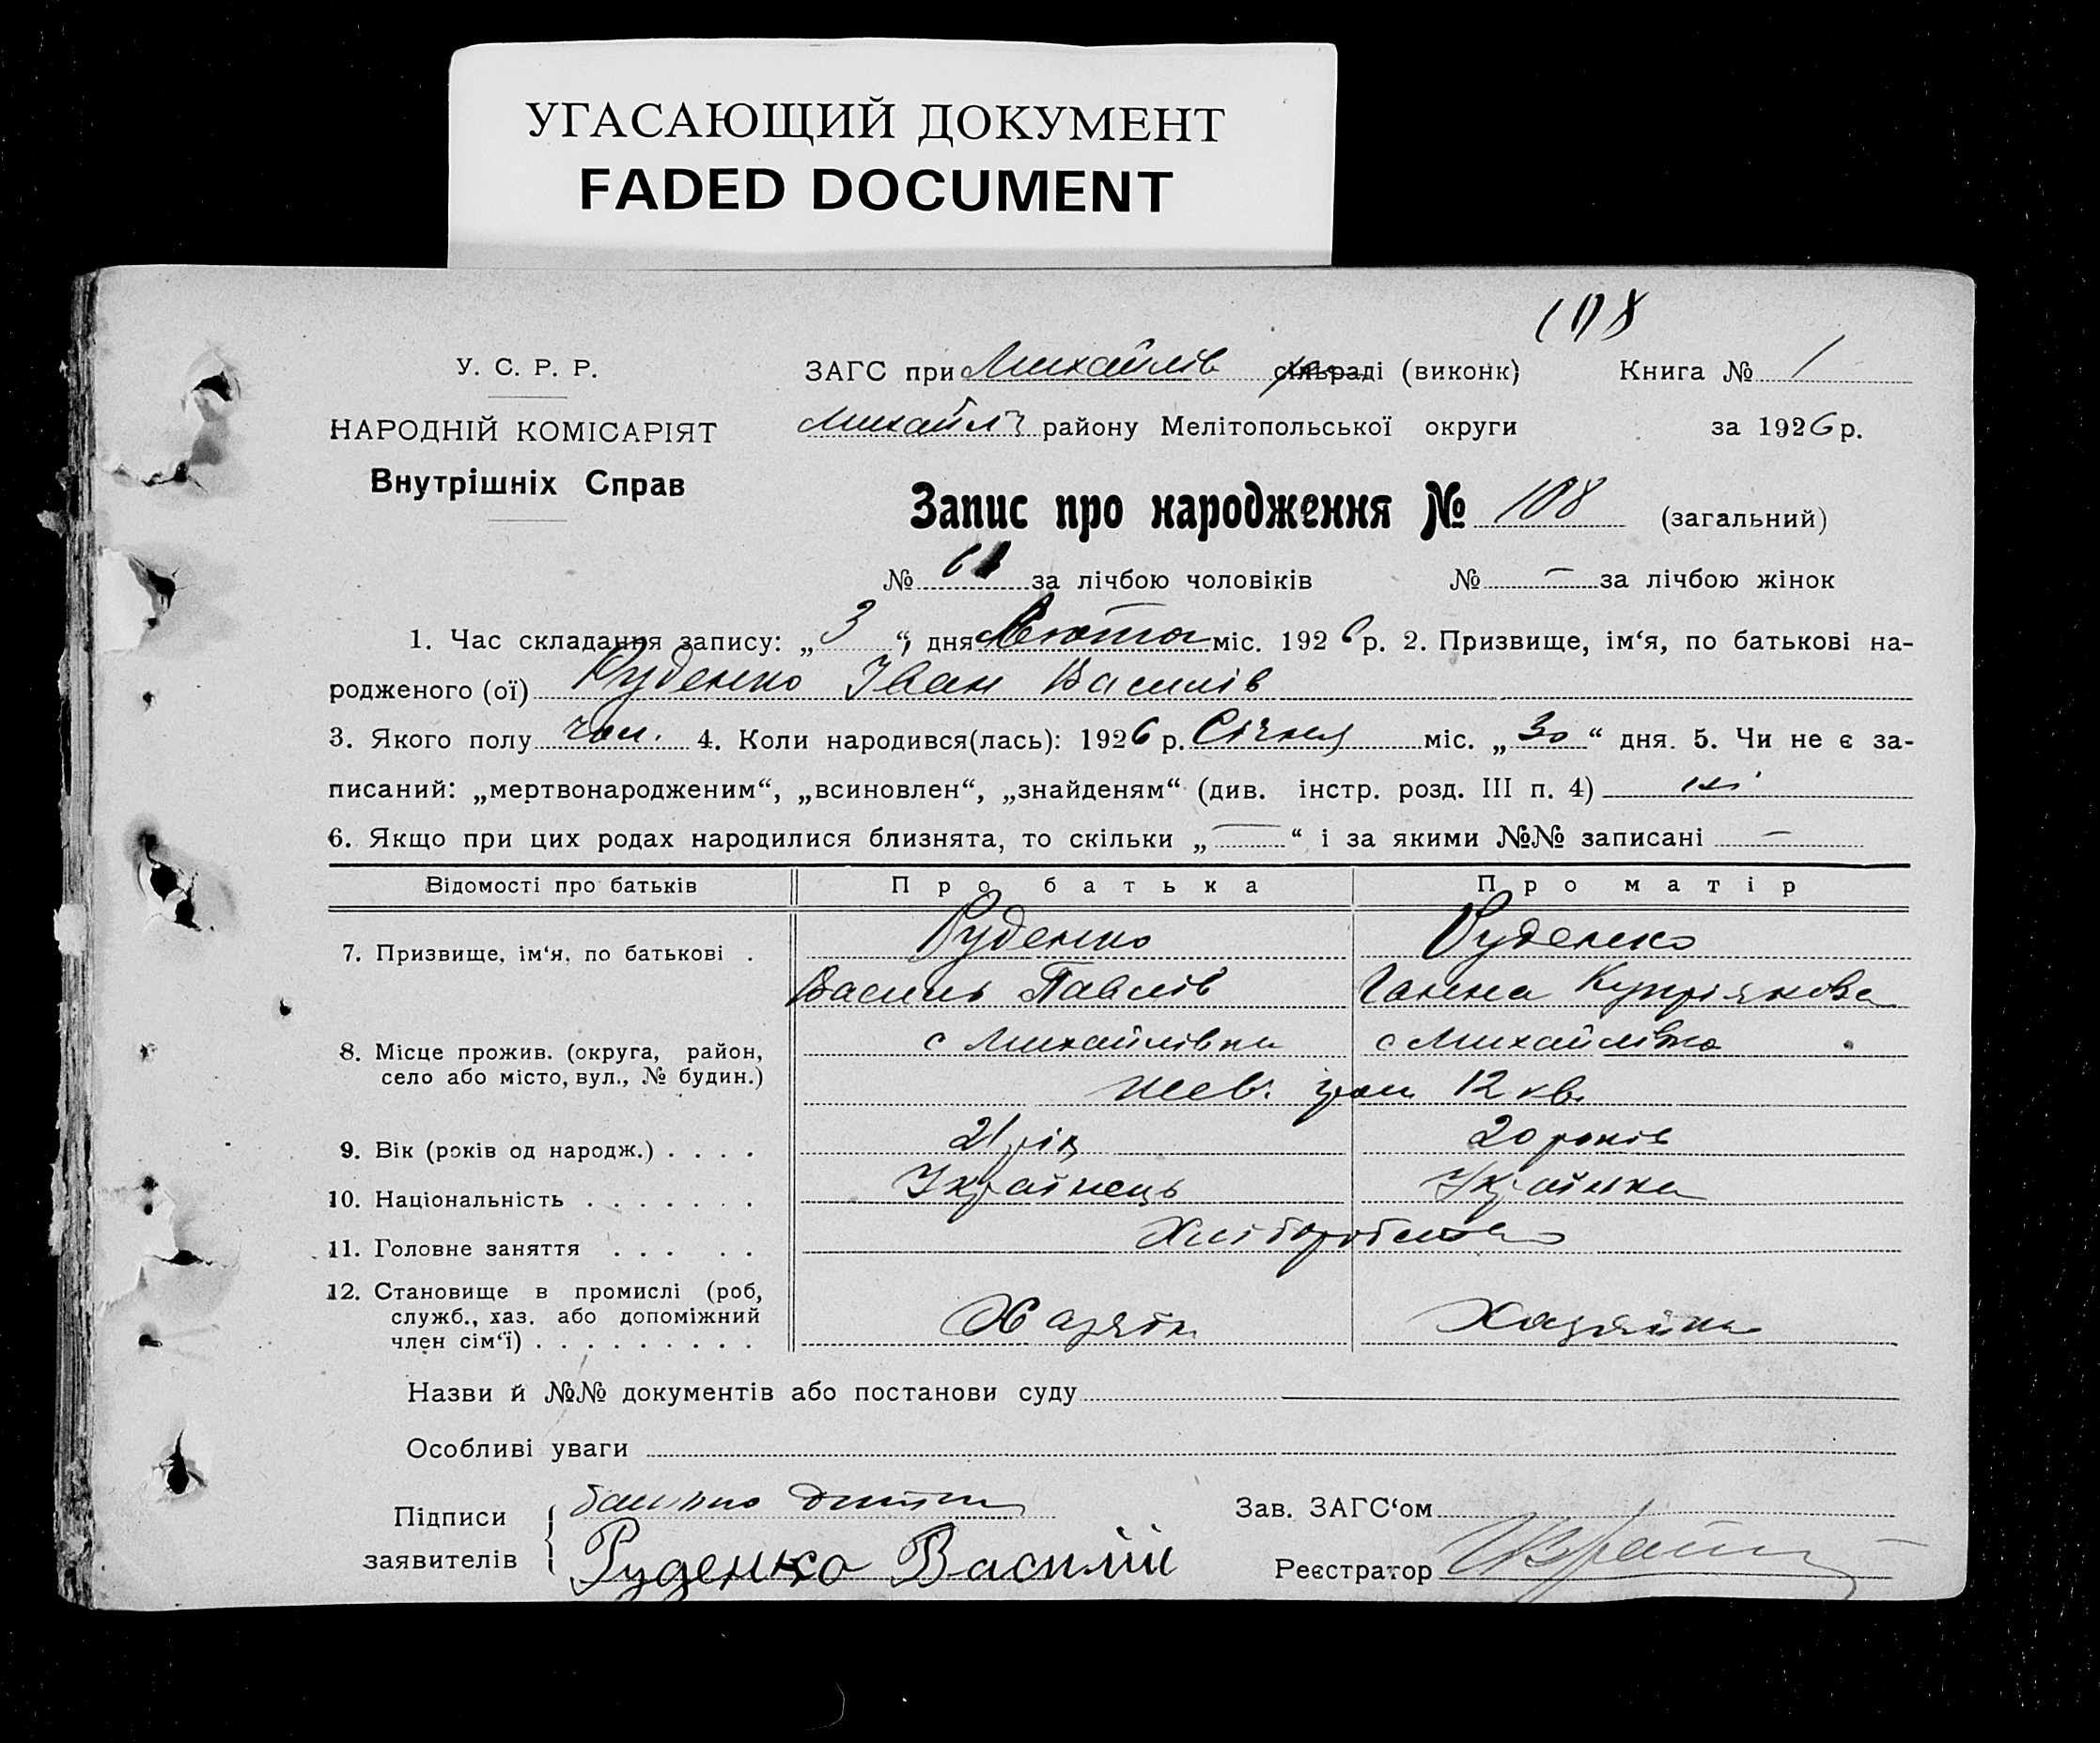 УГАСАЮЩИЙ ДОКУМЕНТ
FADED DOCUMENT
108
У. С. Р. Р.
ЗАГС при Михайлів сільраді (виконк) Книга № 1
НАРОДНІЙ КОМІСАРІЯТ
Михайлі району Мелітопольської округи за 1926 р.
Внутрішніх Справ
Запис про народження № 108 (загальний)
№ за лічбою чоловіків № — за лічбою жінок
1. Час складання запису: „3“, дня Лютого міс. 1926 р. 2. Призвище, ім‘я, по батькові на-
родженого (ої) Руденко Іван Василів
3. Якого полу чол. 4. Коли народився(лась): 1926 р. Січня міс. „30“ дня. 5. Чи не є за-
писаний: „мертвонародженим“, „всиновлен“, „знайденям“ (див. інстр. розд. III п. 4) ні
6. Якщо при цих родах народилися близнята, то скільки „—“ і за якими №№ записані —
Відомості про батьків Про батька Про матір
7. Призвище, ім‘я, по батькові . Руденко Руденко
Василь Павлів Ганна Купріянова
8. Місце прожив. (округа, район, с Михайлівка с Михайлівка
село або місто, вул., № будин.) Шев. 12 кв.
9. Вік (років од народж.) . . . . 21 рік 20 років
10. Національність . . . . . . . Українець Українка
11. Головне заняття . . . . . Хліборобство
12. Становище в промислі (роб,
служб., хаз. або допоміжний Хазяїн Хазяйка
член сім‘ї) . . . . . . . . .
Назви й №№ документів або постанови суду
Особливі уваги
Підписи батько дитини Зав. ЗАГС‘ом
заявителів Руденко Василій Реєстратор